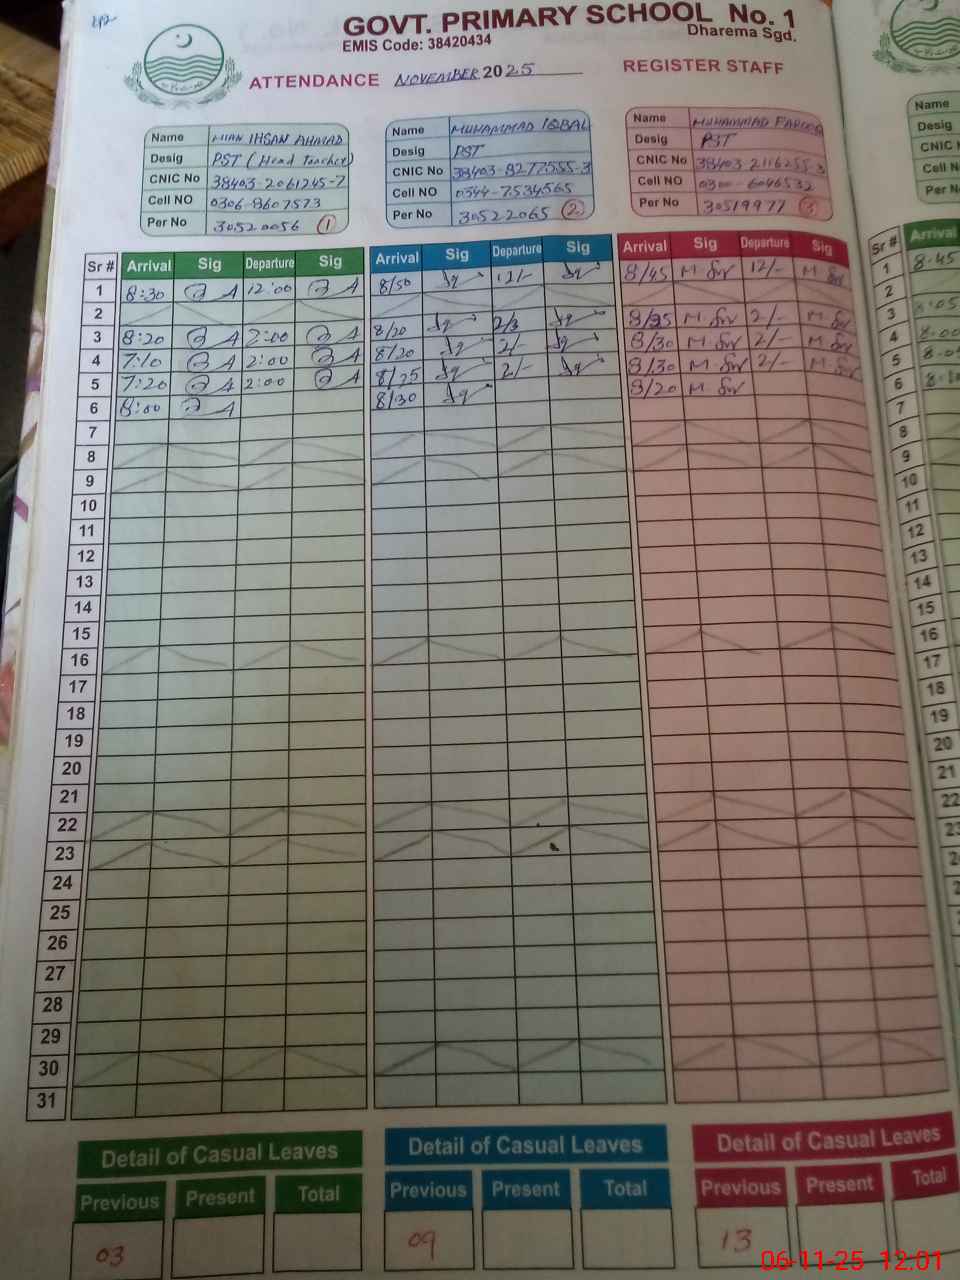 GOVT. PRIMARY SCHOOL No. 1
EMIS Code: 38420434
Dharema Sgd.
ATTENDANCE NOVEMBER 2025 REGISTER STAFF
Name MIAN IHSAN AHMAD
Desig PST (Head Teacher)
CNIC No 38403-2061245-7
Cell NO 0306-8607573
Per No 30520056 1
Name MUHAMMAD IQBAL
Desig PST
CNIC No 38403-8277555-3
Cell NO 0344-7534565
Per No 30522065 2
Name MUHAMMAD FAROOQ
Desig PST
CNIC No 38403-2116255-3
Cell NO 0300-6046532
Per No 30519977 3
Name
Desig
CNIC
Cell N
Per N
Sr # Arrival Sig Departure Sig Arrival Sig Departure Sig Arrival Sig Departure Sig Sr # Arrival
1 8:30 12:00 8/50 12/- 8/45 12/- 1 8.45
2 2
3 8:20 2:00 8/20 2/3 8/35 2/- 3
4 7:10 2:00 8/20 2/- 8/30 2/- 4 8.00
5 7:20 2:00 8/25 2/- 8/30 2/- 5
6 8:00 8/30 8/20 6
7 7
8 8
9 9
10 10
11 11
12 12
13 13
14 14
15 15
16 16
17 17
18 18
19 19
20 20
21 21
22 22
23 23
24
25
26
27
28
29
30
31
Detail of Casual Leaves Detail of Casual Leaves Detail of Casual Leaves
Previous Present Total Previous Present Total Previous Present Total
03 09 13
06-11-25 12.01